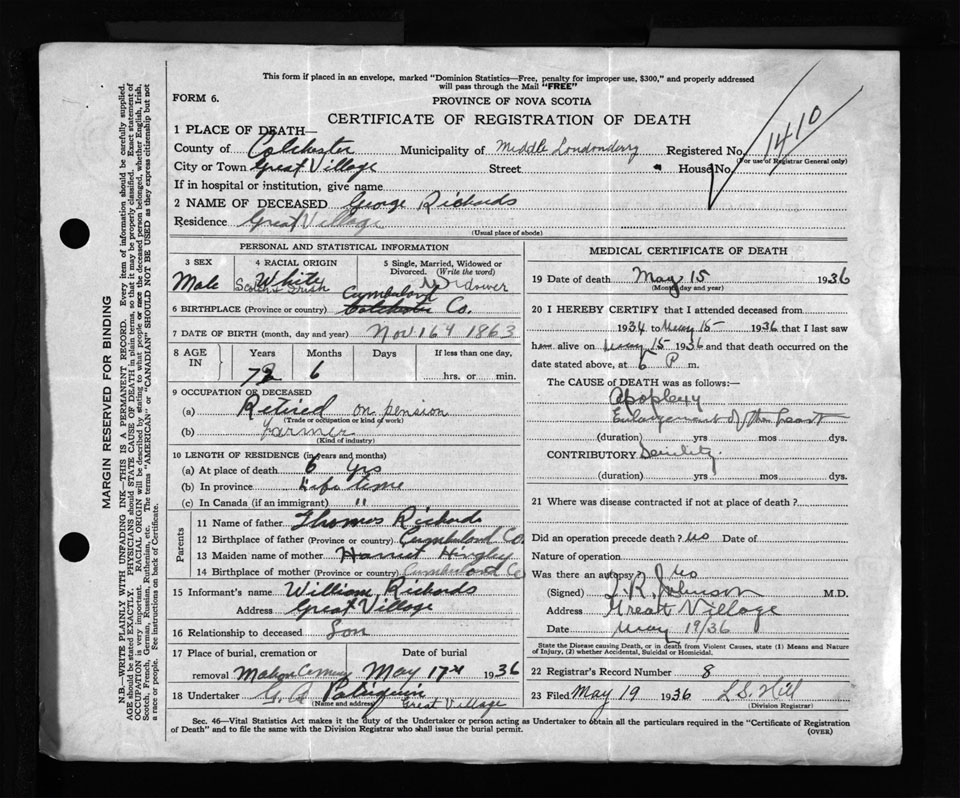 This form if placed in an envelope, marked "Dominion Statistics—Free, penalty for improper use, $300," and properly addressed
will pass through the Mail "FREE"
FORM 6.
PROVINCE OF NOVA SCOTIA
CERTIFICATE OF REGISTRATION OF DEATH
1410
1 PLACE OF DEATH—
County of Colchester Municipality of Middle Londonderry Registered No.
(For use of Registrar General only)
City or Town Great Village Street House No.
If in hospital or institution, give name
2 NAME OF DECEASED George Richards
Residence Great Village
(Usual place of abode)
PERSONAL AND STATISTICAL INFORMATION
3 SEX 4 RACIAL ORIGIN 5 Single, Married, Widowed or Divorced. (Write the word)
Male White Widower
Scotch & Irish
6 BIRTHPLACE (Province or country) Cumberland Colchester Co.
7 DATE OF BIRTH (month, day and year) Nov 16th 1863
8 AGE IN Years Months Days If less than one day,
72 6 hrs. or min.
9 OCCUPATION OF DECEASED
(a) Retired on pension
(Trade or occupation or kind of work)
(b) farmer
(Kind of industry)
10 LENGTH OF RESIDENCE (in years and months)
(a) At place of death 6 yrs
(b) In province Life time
(c) In Canada (if an immigrant) "
Parents
11 Name of father Thomas Richards
12 Birthplace of father (Province or country) Cumberland Co.
13 Maiden name of mother Harriet
14 Birthplace of mother (Province or country) Cumberland Co
15 Informant's name William Richards
Address Great Village
16 Relationship to deceased Son
17 Place of burial, cremation or removal Date of burial
Mahon Cemetery May 17th 1936
18 Undertaker G. A. Patriquin
(Name and address) Great Village
MEDICAL CERTIFICATE OF DEATH
19 Date of death May 15 1936
(Month, day and year)
20 I HEREBY CERTIFY that I attended deceased from
1934 to May 15 1936 that I last saw
him alive on May 15 1936 and that death occurred on the
date stated above, at 6 P m.
The CAUSE OF DEATH was as follows:—
Apoplexy
Enlargement of the heart
(duration) yrs mos dys.
CONTRIBUTORY Senility.
(duration) yrs mos dys.
21 Where was disease contracted if not at place of death?
Did an operation precede death? no Date of
Nature of operation
Was there an autopsy? no
(Signed) T. R. Johnson M.D.
Address Great Village
Date May 19/36
State the Disease causing Death, or in death from Violent Causes, state (1) Means and Nature
of Injury, (2) whether Accidental, Suicidal or Homicidal.
22 Registrar's Record Number 8
23 Filed May 19 1936 L S. Hill
(Division Registrar)
Sec. 46—Vital Statistics Act makes it the duty of the Undertaker or person acting as Undertaker to obtain all the particulars required in the "Certificate of Registration
of Death" and to file the same with the Division Registrar who shall issue the burial permit.
(OVER)
MARGIN RESERVED FOR BINDING
N.B.—WRITE PLAINLY WITH UNFADING INK—THIS IS A PERMANENT RECORD. Every item of information should be carefully supplied.
AGE should be stated EXACTLY. PHYSICIANS should STATE CAUSE OF DEATH in plain terms, so that it may be properly classified. Exact statement of
OCCUPATION is very important. RACIAL ORIGIN will be described by stating to what people or race the deceased person belonged, whether English, Irish,
Scotch, French, German, Russian, Ruthenian, etc. The terms "AMERICAN" or "CANADIAN" SHOULD NOT BE USED as they express citizenship but not
a race or people. See instructions on back of Certificate.